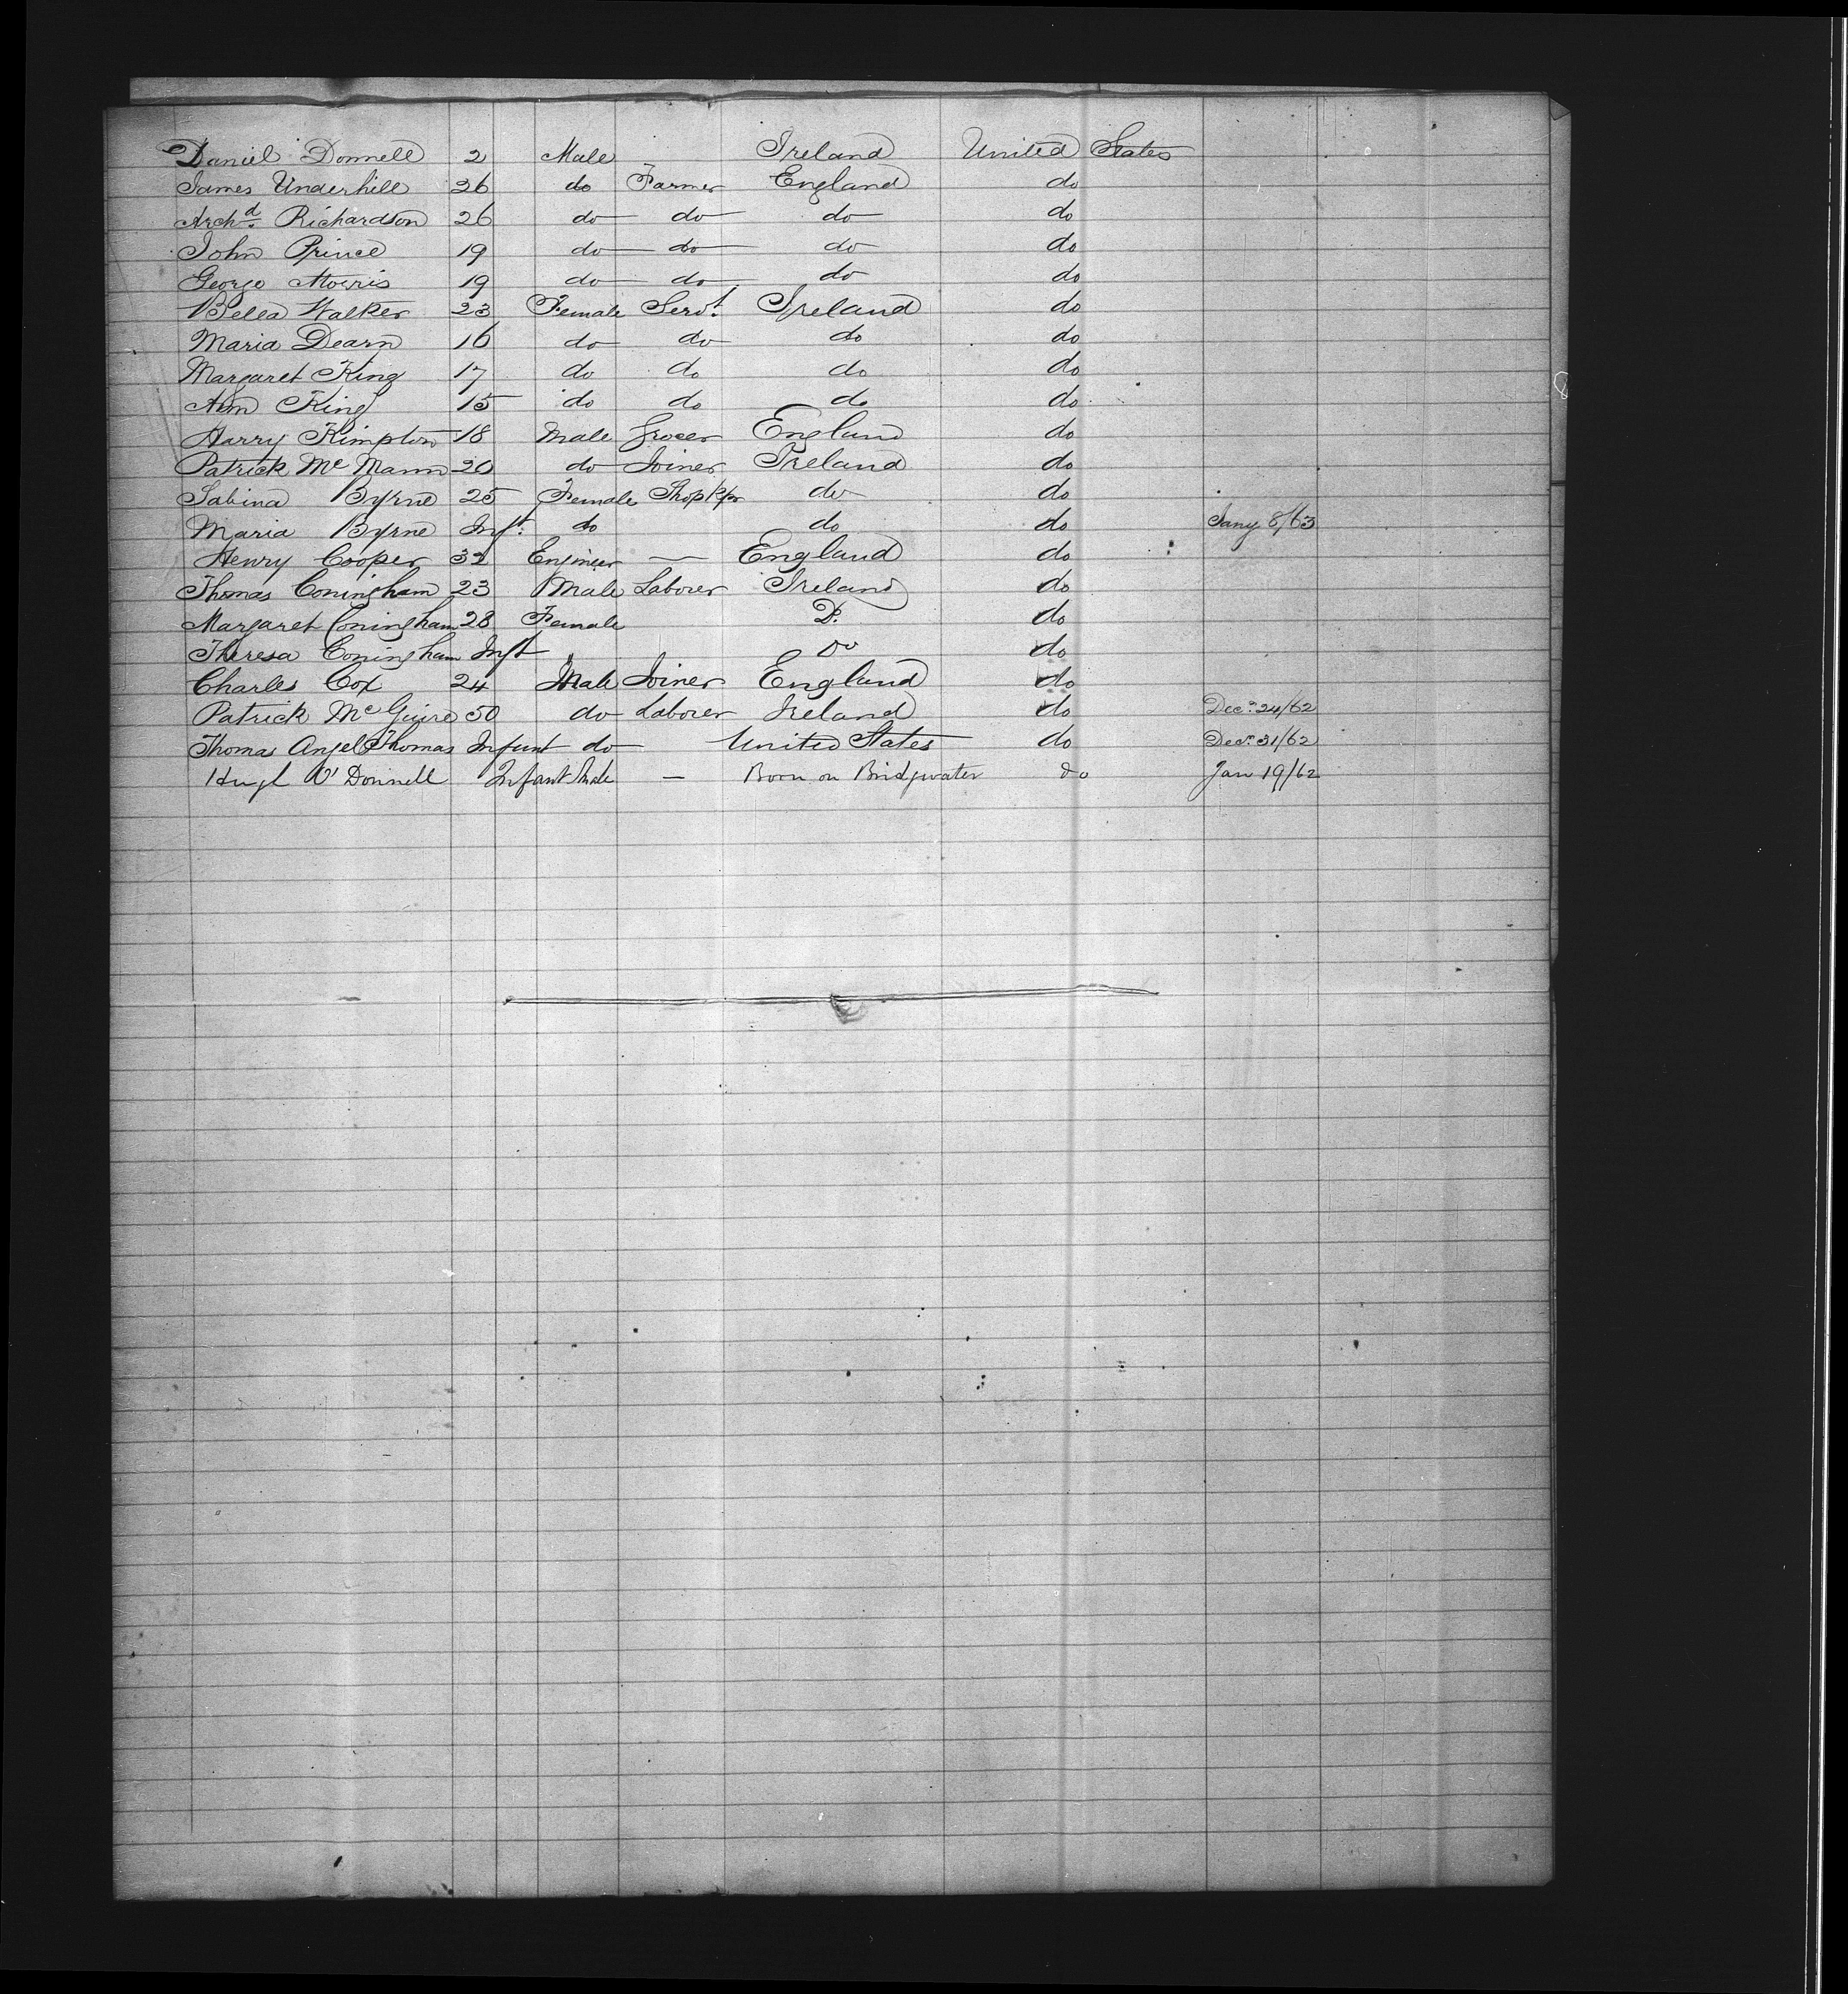 Daniel Donnell 2 Male Ireland United States
James Underhill 26 do Farmer England do
Archd. Richardson 26 do do do do
John Prince 19 do do do do
George Morris 19 do do do do
Bella Walker 23 Female Servt. Ireland do
Maria Dearn 16 do do do do
Margaret King 17 do do do do
Ann King 15 do do do do
Harry Kimpton 18 Male Grocer England do
Patrick Mc Mann 20 do Joiner Ireland do
Sabina Byrne 25 Female Shopkpr do do
Maria Byrne Inft. do do do Jany 8/63
Henry Cooper 32 Engineer — England do
Thomas Coningham 23 Male Laborer Ireland do
Margaret Coningham 28 Female Do. do
Theresa Coningham Inft Do do
Charles Cox 24 Male Joiner England do
Patrick Mc Guire 50 do Laborer Ireland do Decr. 24/62
Thomas Angel Thomas Infant do United States do Decr. 31/62
Hugh O'Donnell Infant Male — Born on Bridgwater do Jan 19/62